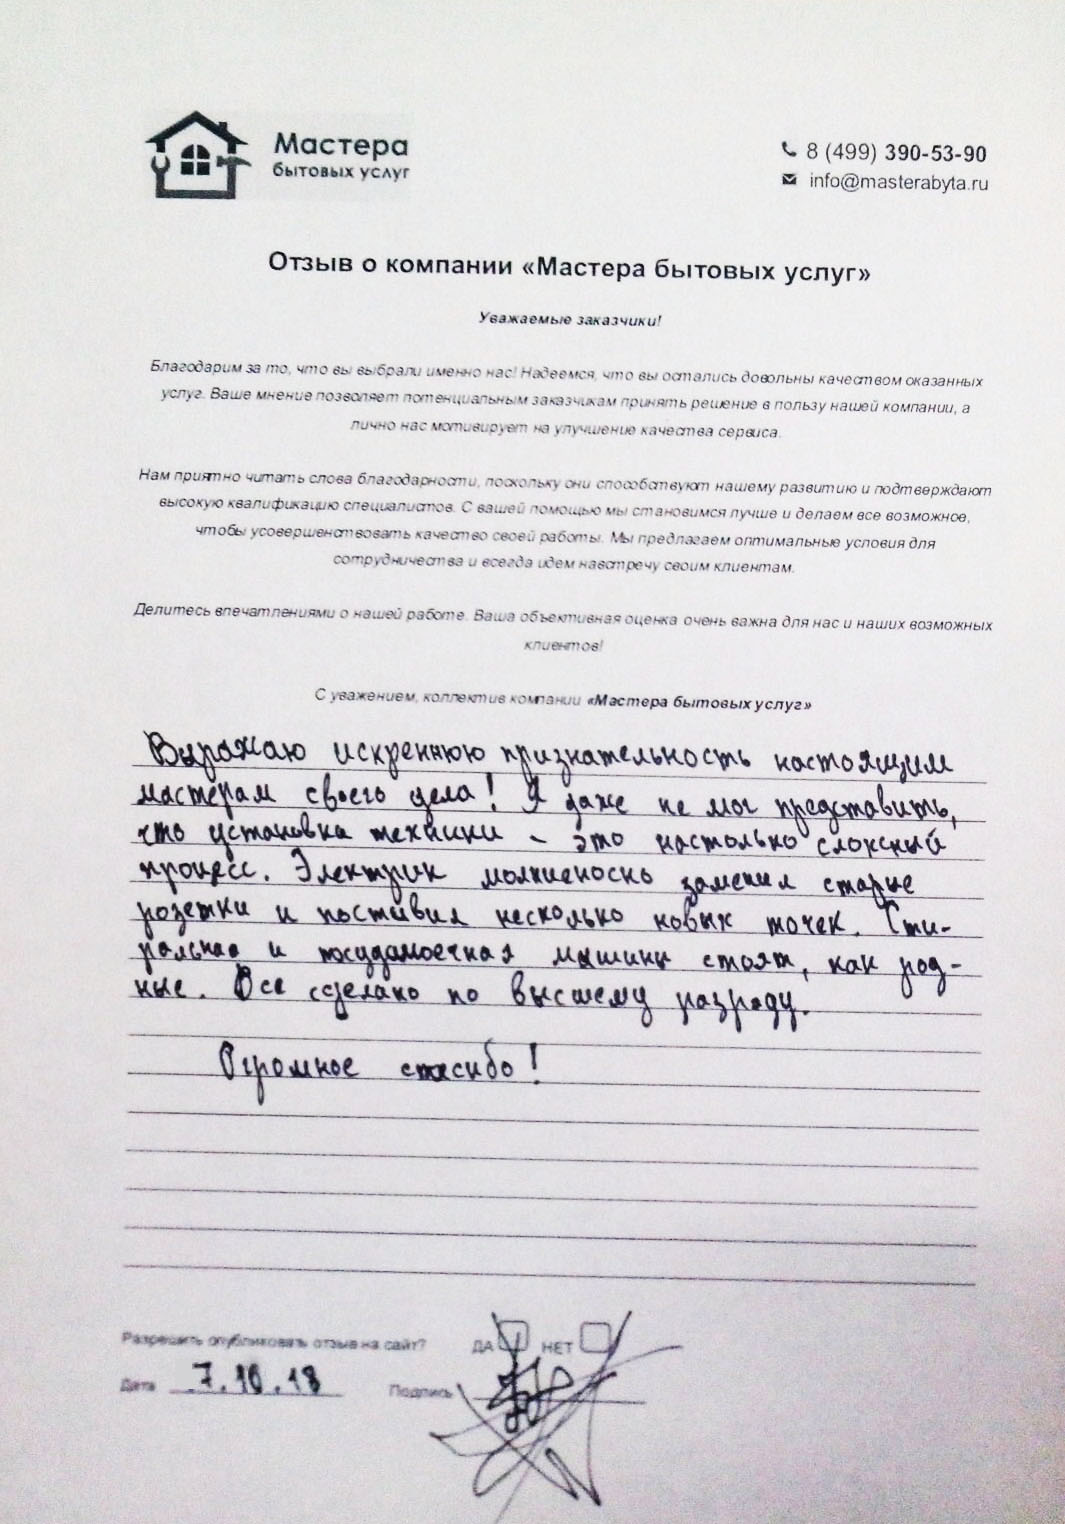 Мастера
бытовых услуг
8 (499) 390-53-90
info@masterabyta.ru
Отзыв о компании «Мастера бытовых услуг»
Уважаемые заказчики!
Благодарим за то, что вы выбрали именно нас! Надеемся, что вы остались довольны качеством оказанных
услуг. Ваше мнение позволяет потенциальным заказчикам принять решение в пользу нашей компании, а
лично нас мотивирует на улучшение качества сервиса.
Нам приятно читать слова благодарности, поскольку они способствуют нашему развитию и подтверждают
высокую квалификацию специалистов. С вашей помощью мы становимся лучше и делаем все возможное,
чтобы усовершенствовать качество своей работы. Мы предлагаем оптимальные условия для
сотрудничества и всегда идем навстречу своим клиентам.
Делитесь впечатлениями о нашей работе. Ваша объективная оценка очень важна для нас и наших возможных
клиентов!
С уважением, коллектив компании «Мастера бытовых услуг»
Выражаю искреннюю признательность настоящим
мастерам своего дела! Я даже не мог представить,
что установка техники - это настолько сложный
процесс. Электрик молниеносно заменил старые
розетки и поставил несколько новых точек. Сти-
ральная и посудомоечная машины стоят, как род-
ные. Все сделано по высшему разряду.
Огромное спасибо!
Разрешить опубликовать отзыв на сайт? ДА НЕТ
Дата 7.10.18 Подпись